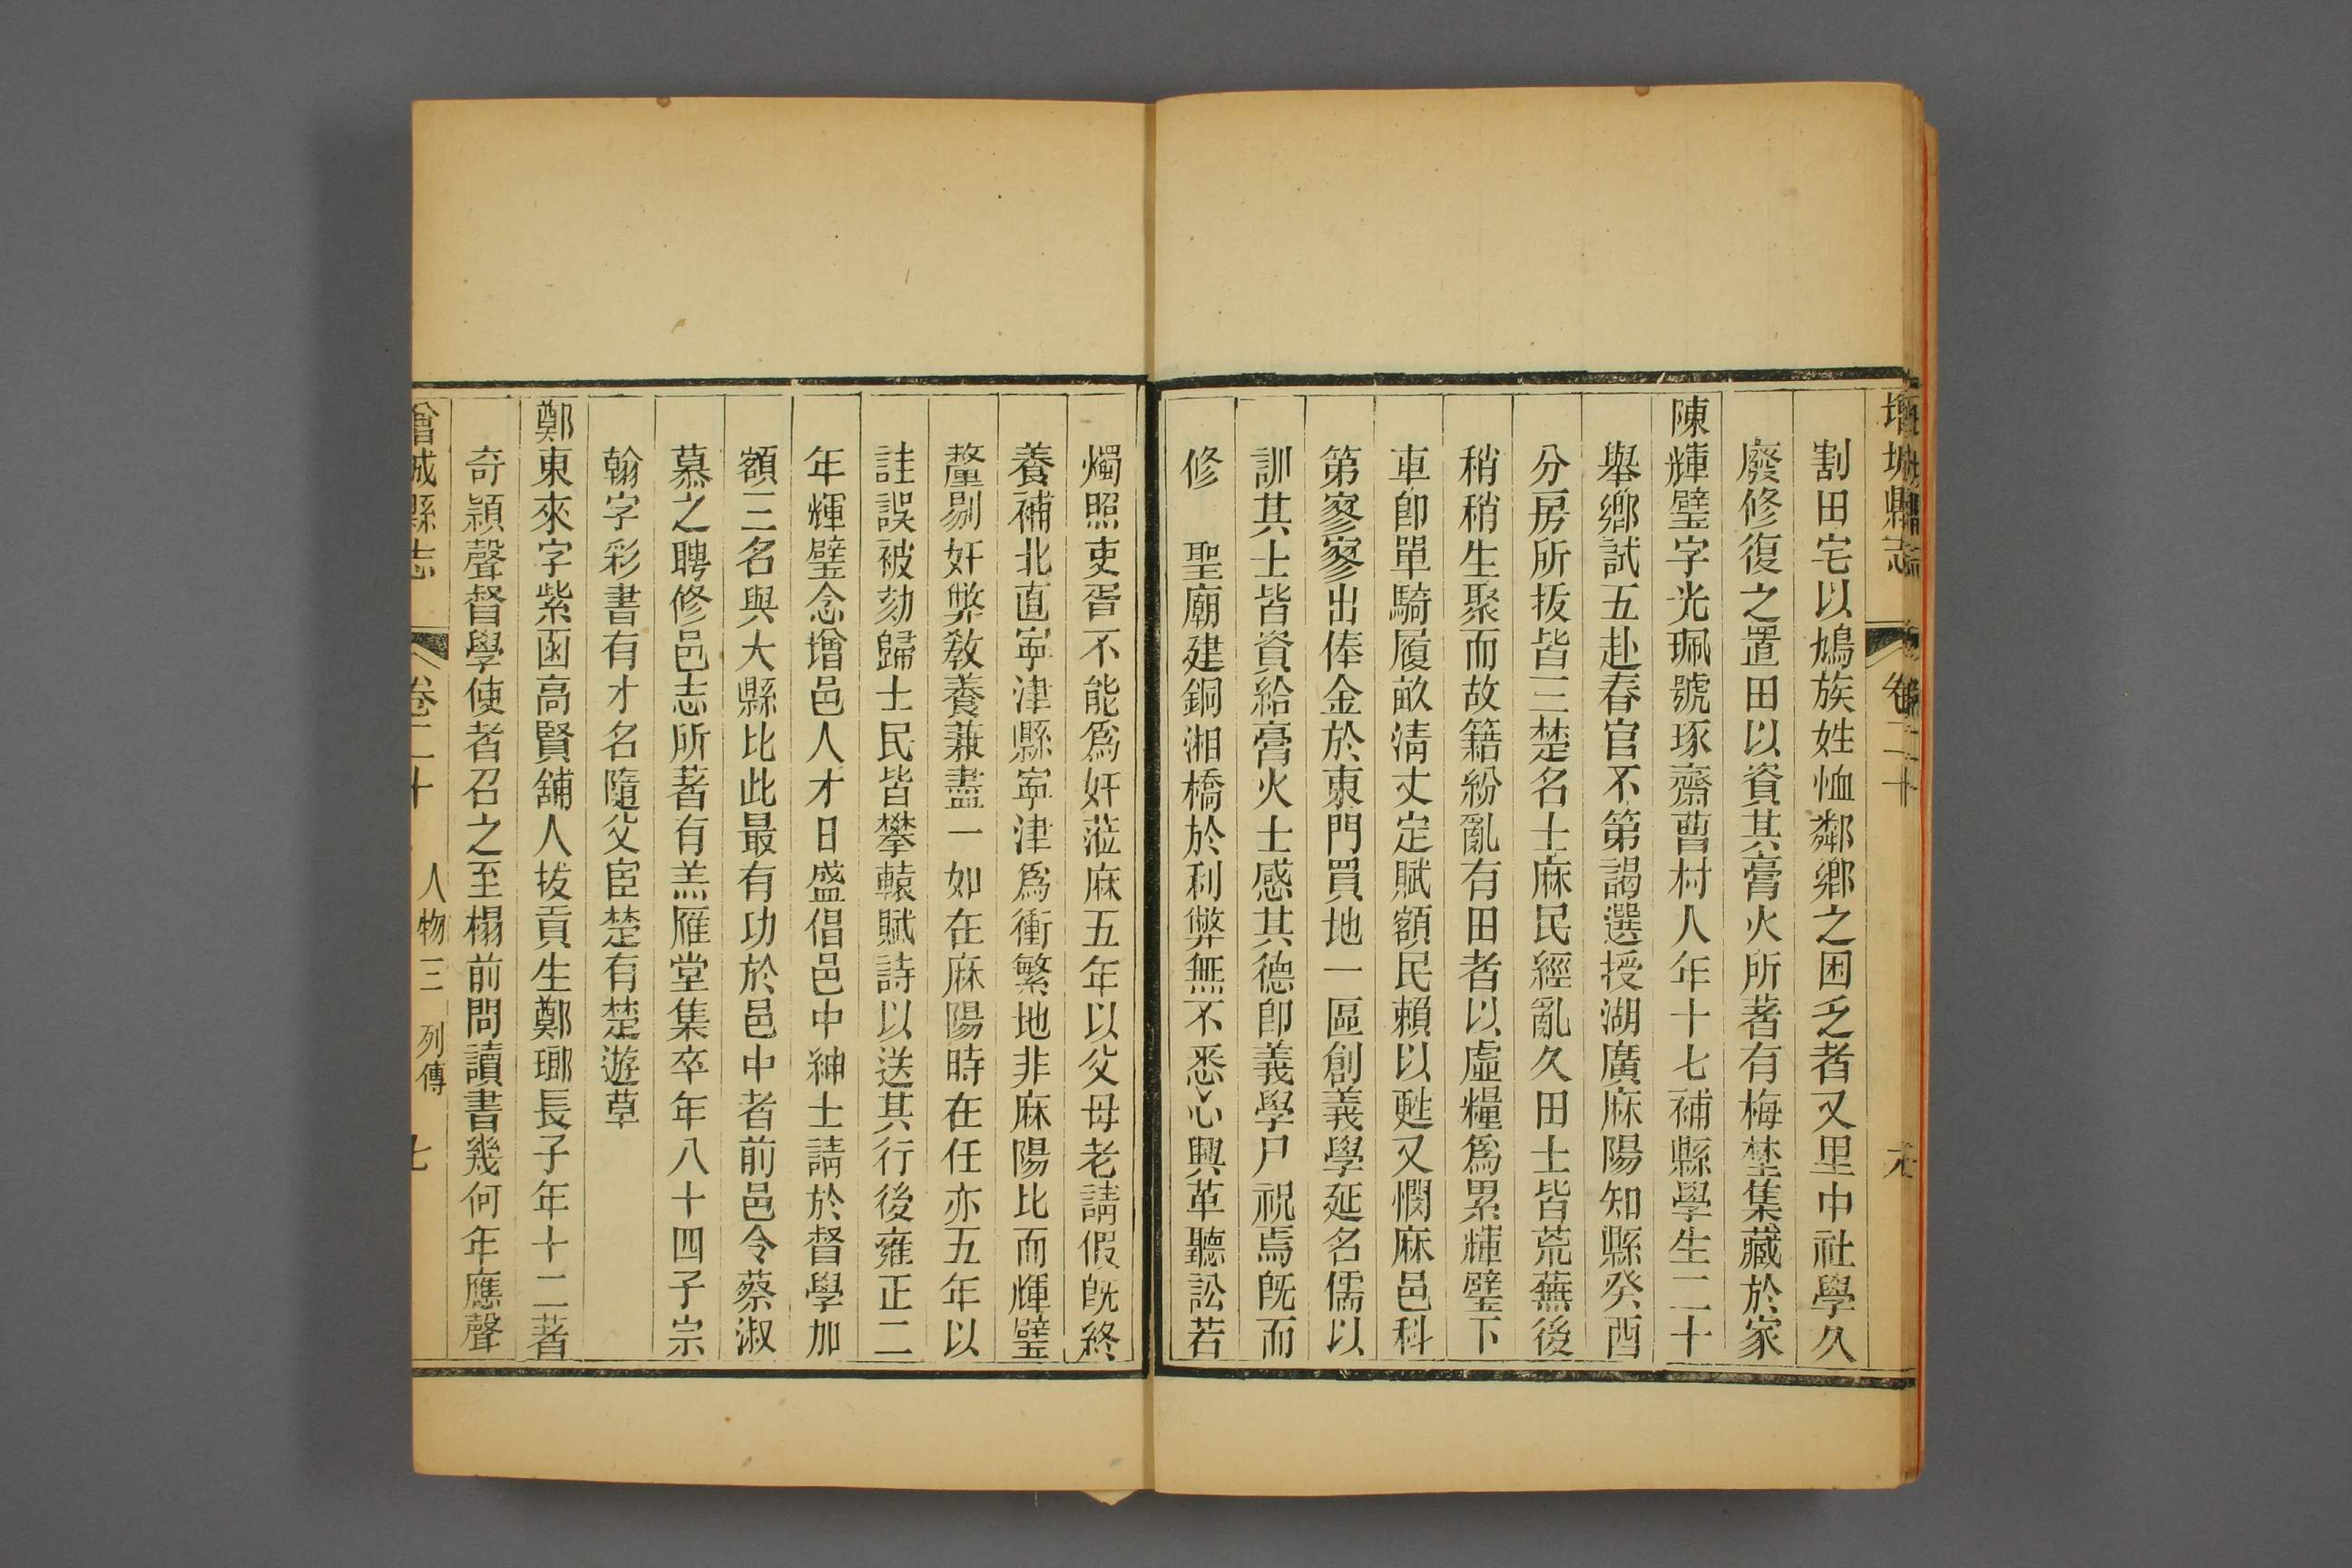 增城縣志 卷二十
割田宅以鳩族姓恤鄰鄉之困乏者又里中社學久
廢修復之置田以資其膏火所著有梅埜集藏於家
陳輝璧字光珮號琢齋曹村人年十七補縣學生二十
舉鄉試五赴春官不第謁選授湖廣麻陽知縣癸酉
分房所拔皆三楚名士麻民經亂久田土皆荒蕪後
稍稍生聚而故籍紛亂有田者以虛糧爲累輝璧下
車卽單騎履畝淸丈定賦額民賴以甦又憫麻邑科
第寥寥出俸金於東門買地一區創義學延名儒以
訓其士皆資給膏火士感其德卽義學尸祝焉旣而
修　聖廟建銅湘橋於利弊無不悉心興革聽訟若
燭照吏胥不能爲奸蒞麻五年以父母老請假旣終
養補北直寧津縣寧津爲衝繁地非麻陽比而輝璧
釐剔奸弊敎養兼盡一如在麻陽時在任亦五年以
詿誤被劾歸士民皆攀轅賦詩以送其行後雍正二
年輝璧念增邑人才日盛倡邑中紳士請於督學加
額三名與大縣比此最有功於邑中者前邑令蔡淑
慕之聘修邑志所著有羔雁堂集卒年八十四子宗
翰字彩書有才名隨父宦楚有楚遊草
鄭東來字紫函高賢舖人拔貢生鄭瑯長子年十二著
奇穎聲督學使者召之至榻前問讀書幾何年應聲
增城縣志 卷二十 人物三 列傳 七